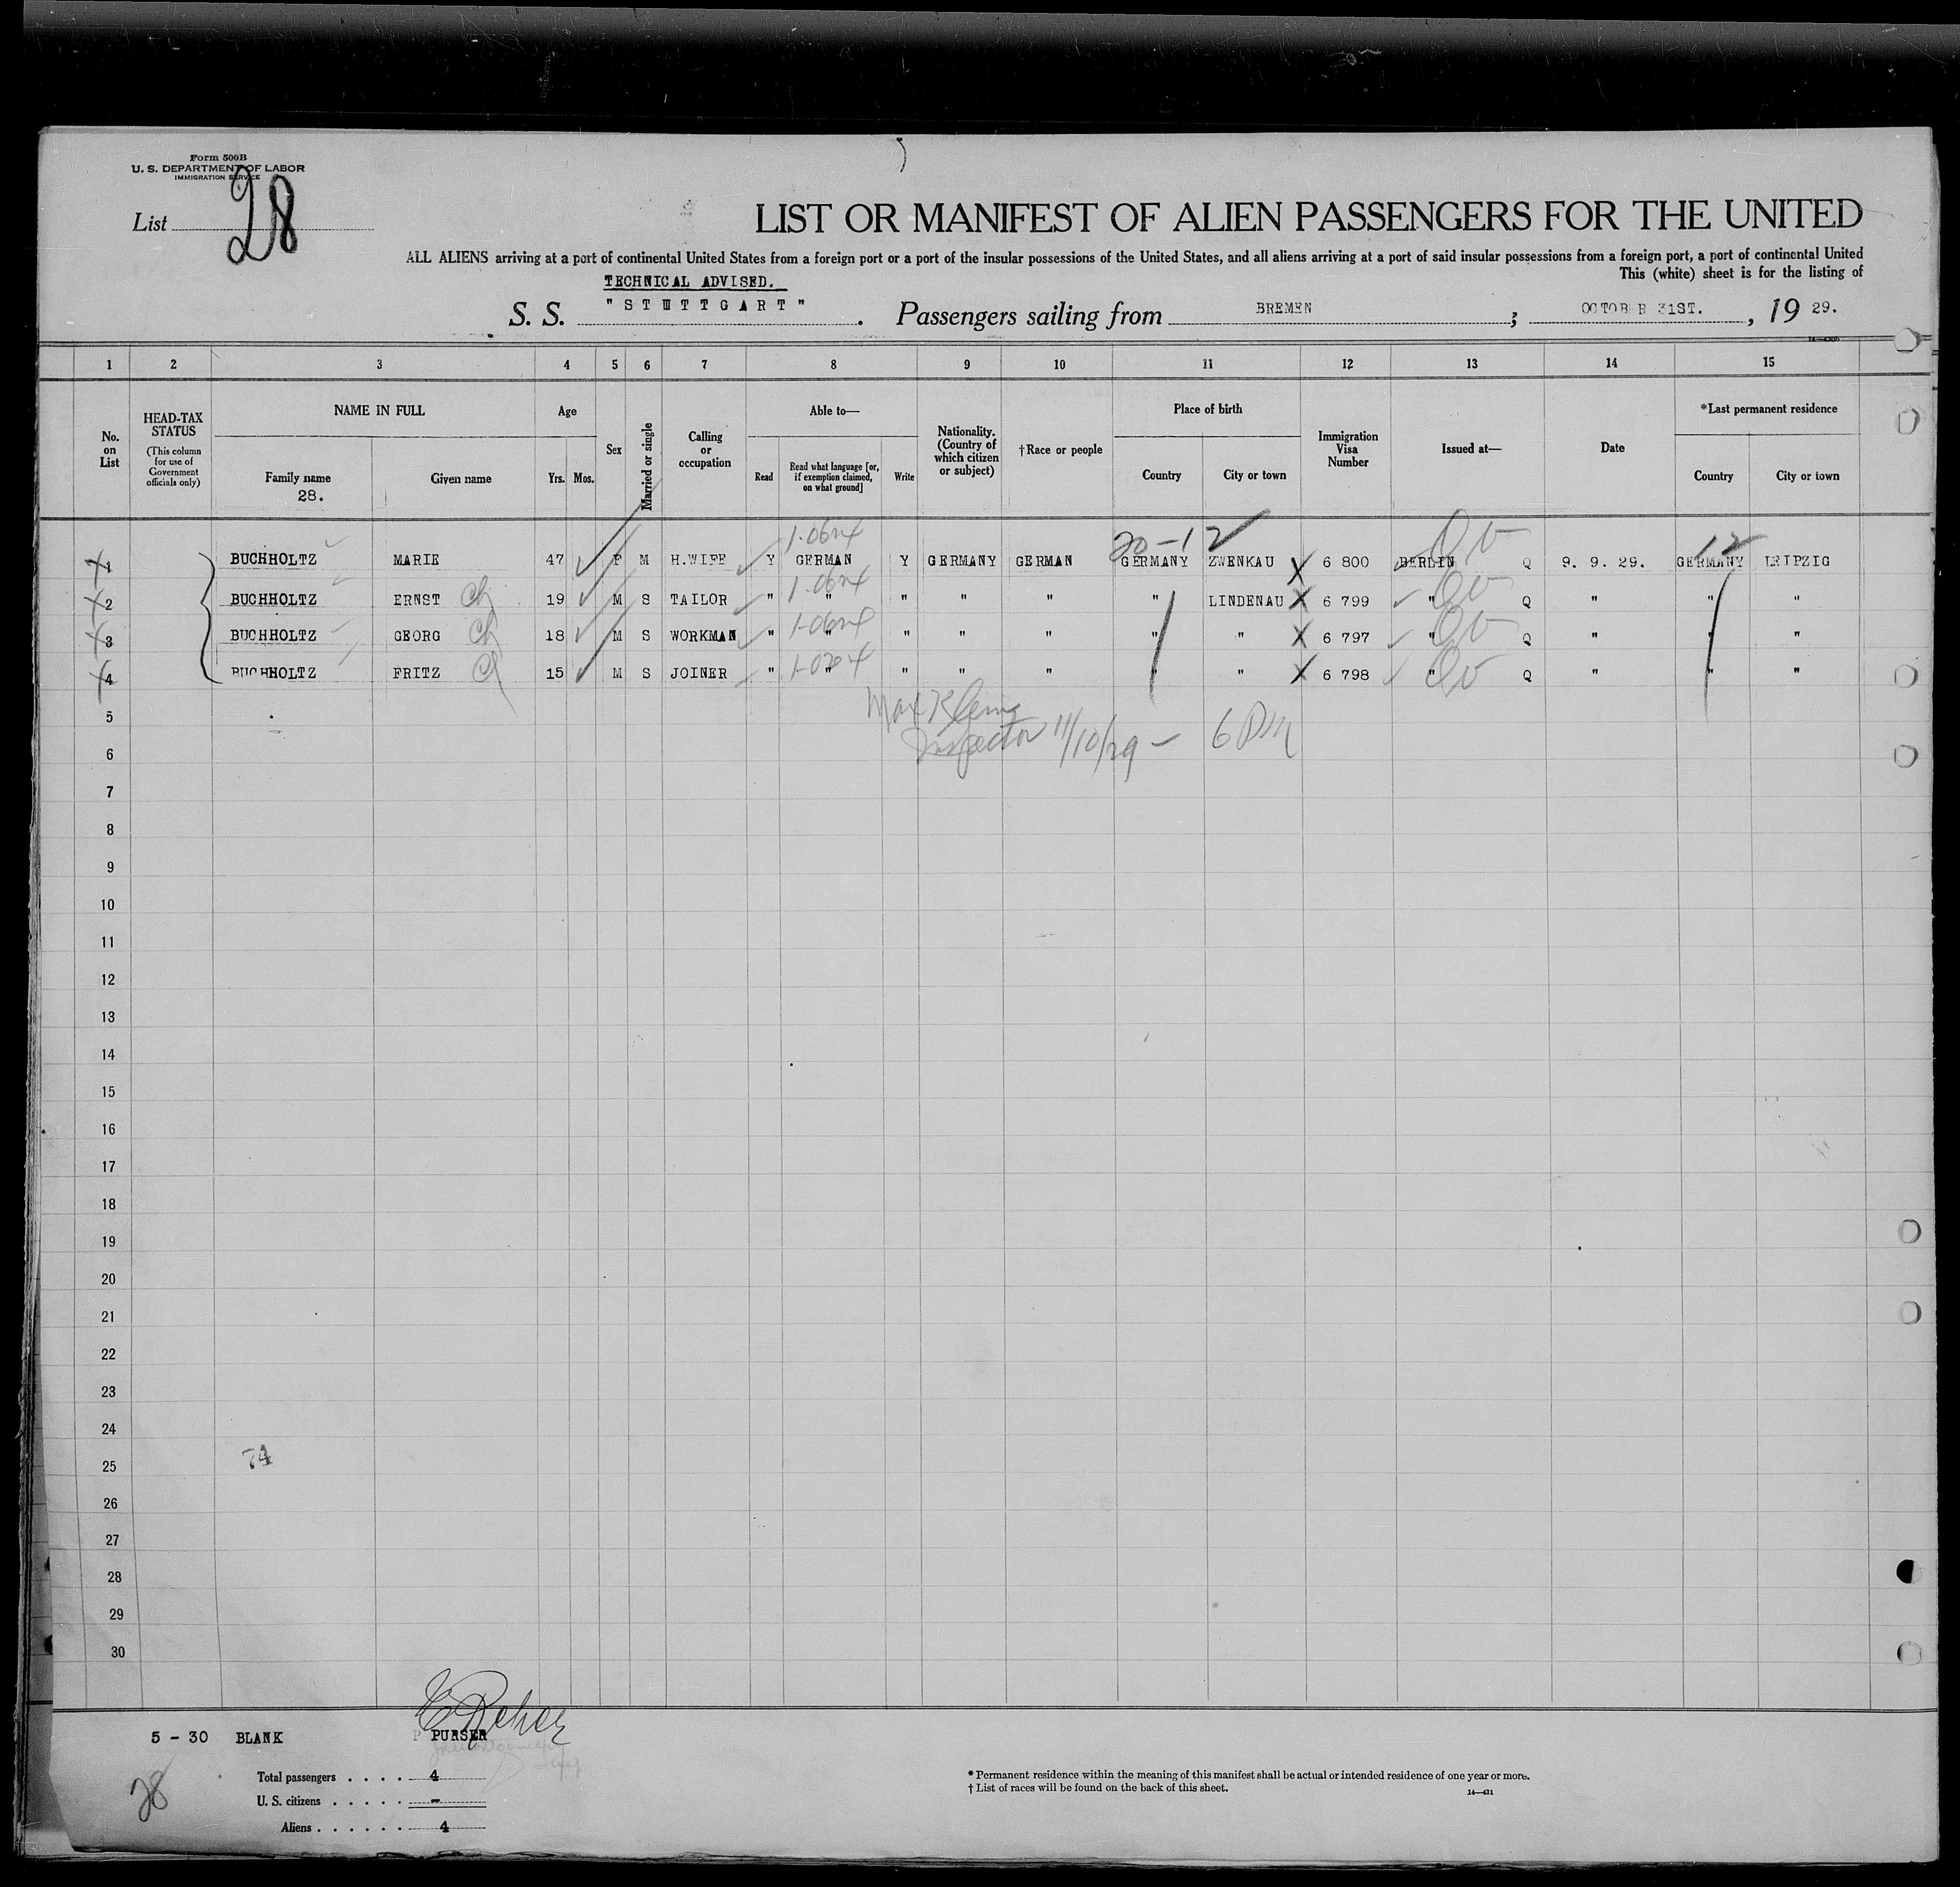 Form 500B
U. S. DEPARTMENT OF LABOR
IMMIGRATION SERVICE
List 28
LIST OR MANIFEST OF ALIEN PASSENGERS FOR THE UNITED
ALL ALIENS arriving at a port of continental United States from a foreign port or a port of the insular possessions of the United States, and all aliens arriving at a port of said insular possessions from a foreign port, a port of continental United
This (white) sheet is for the listing of
TECHNICAL ADVISED.
S. S. "STUTTGART". Passengers sailing from BREMEN; OCTOBER 31ST., 19 29.
1 2 3 4 5 6 7 8 9 10 11 12 13 14 15
No. on List
HEAD-TAX STATUS
(This column for use of Government officials only)
NAME IN FULL
Family name
28.
Given name
Age
Yrs. Mos.
Sex
Married or single
Calling or occupation
Able to—
Read
Read what language [or, if exemption claimed, on what ground]
Write
Nationality. (Country of which citizen or subject)
†Race or people
Place of birth
Country
City or town
Immigration Visa Number
Issued at—
Date
*Last permanent residence
Country
City or town
20-12 12
1 BUCHHOLTZ MARIE 47 F M H.WIFE Y GERMAN Y GERMANY GERMAN GERMANY ZWENKAU 6 800 BERLIN Q 9. 9. 29. GERMANY LEIPZIG
2 BUCHHOLTZ ERNST Ch 19 M S TAILOR " " " " " " LINDENAU 6 799 " Q " " "
3 BUCHHOLTZ GEORG Ch 18 M S WORKMAN " " " " " " " 6 797 " Q " " "
4 BUCHHOLTZ FRITZ Ch 15 M S JOINER " " " " " " " 6 798 " Q " " "
5
Inspector 11/10/29 - 6 PM
6
7
8
9
10
11
12
13
14
15
16
17
18
19
20
21
22
23
24
25 74
26
27
28
29
30
5 - 30 BLANK
PURSER
28
Total passengers . . . . 4
U. S. citizens . . . . . -
Aliens . . . . . . 4
* Permanent residence within the meaning of this manifest shall be actual or intended residence of one year or more.
† List of races will be found on the back of this sheet.
14—431